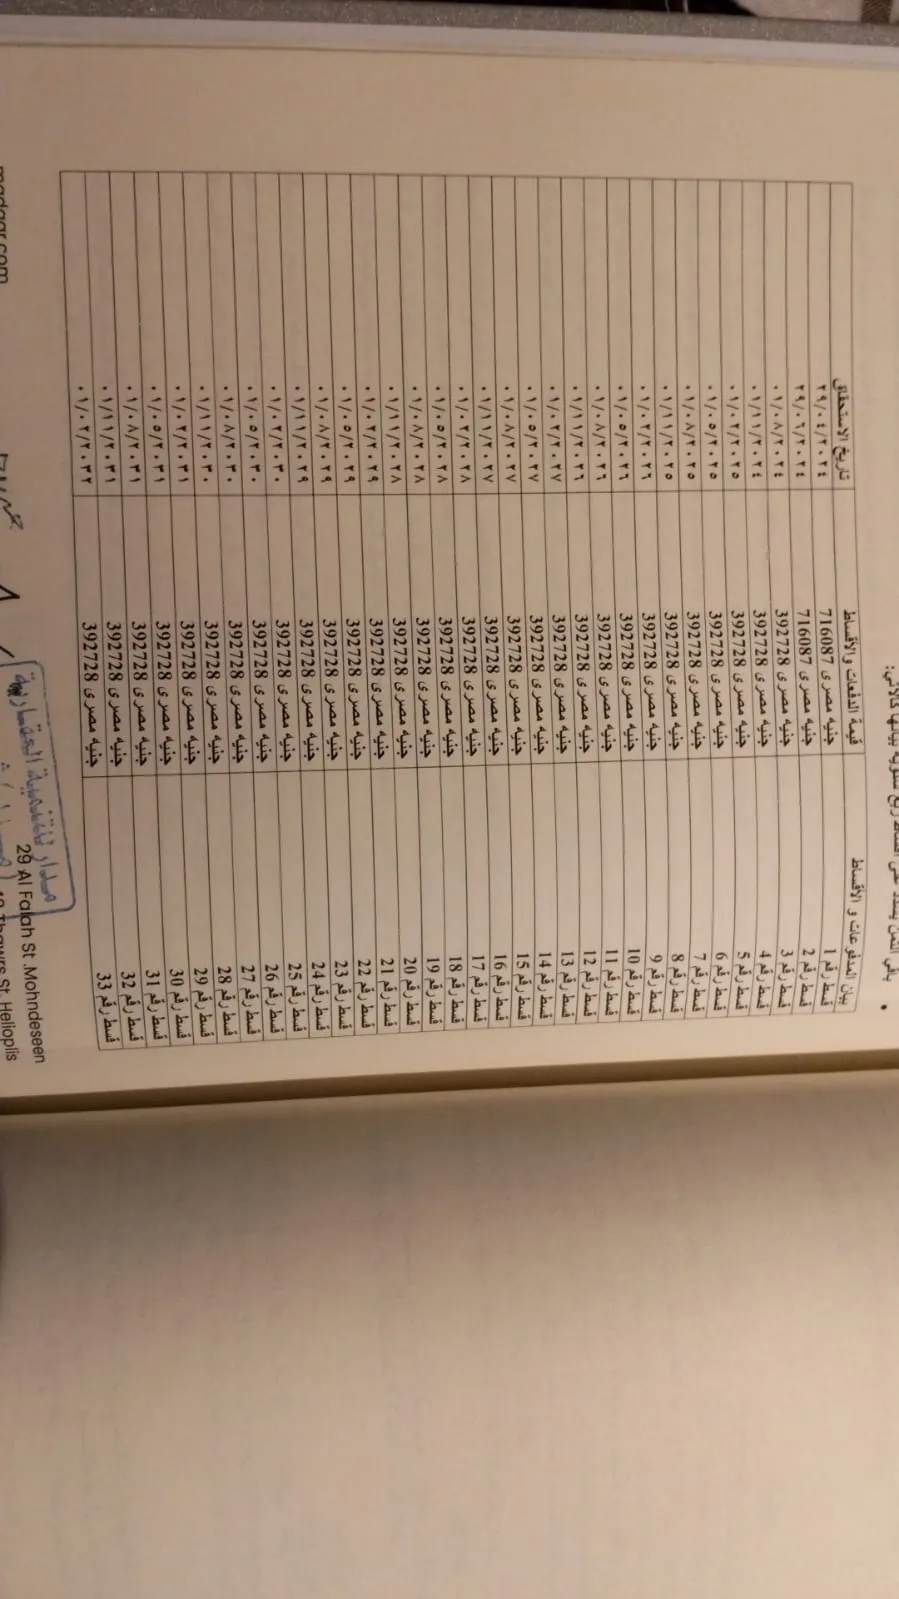 باقي الثمن يسدد على أقساط ربع سنوية بيانها كالآتي:
بيان المدفوعات و الأقساط قيمة الدفعات والأقساط تاريخ الاستحقاق
قسط رقم 1 716087 جنيه مصرى ٢٩/٠٤/٢٠٢٤
قسط رقم 2 716087 جنيه مصرى ٢٩/٠٦/٢٠٢٤
قسط رقم 3 392728 جنيه مصرى ٠١/٠٨/٢٠٢٤
قسط رقم 4 392728 جنيه مصرى ٠١/١١/٢٠٢٤
قسط رقم 5 392728 جنيه مصرى ٠١/٠٢/٢٠٢٥
قسط رقم 6 392728 جنيه مصرى ٠١/٠٥/٢٠٢٥
قسط رقم 7 392728 جنيه مصرى ٠١/٠٨/٢٠٢٥
قسط رقم 8 392728 جنيه مصرى ٠١/١١/٢٠٢٥
قسط رقم 9 392728 جنيه مصرى ٠١/٠٢/٢٠٢٦
قسط رقم 10 392728 جنيه مصرى ٠١/٠٥/٢٠٢٦
قسط رقم 11 392728 جنيه مصرى ٠١/٠٨/٢٠٢٦
قسط رقم 12 392728 جنيه مصرى ٠١/١١/٢٠٢٦
قسط رقم 13 392728 جنيه مصرى ٠١/٠٢/٢٠٢٧
قسط رقم 14 392728 جنيه مصرى ٠١/٠٥/٢٠٢٧
قسط رقم 15 392728 جنيه مصرى ٠١/٠٨/٢٠٢٧
قسط رقم 16 392728 جنيه مصرى ٠١/١١/٢٠٢٧
قسط رقم 17 392728 جنيه مصرى ٠١/٠٢/٢٠٢٨
قسط رقم 18 392728 جنيه مصرى ٠١/٠٥/٢٠٢٨
قسط رقم 19 392728 جنيه مصرى ٠١/٠٨/٢٠٢٨
قسط رقم 20 392728 جنيه مصرى ٠١/١١/٢٠٢٨
قسط رقم 21 392728 جنيه مصرى ٠١/٠٢/٢٠٢٩
قسط رقم 22 392728 جنيه مصرى ٠١/٠٥/٢٠٢٩
قسط رقم 23 392728 جنيه مصرى ٠١/٠٨/٢٠٢٩
قسط رقم 24 392728 جنيه مصرى ٠١/١١/٢٠٢٩
قسط رقم 25 392728 جنيه مصرى ٠١/٠٢/٢٠٣٠
قسط رقم 26 392728 جنيه مصرى ٠١/٠٥/٢٠٣٠
قسط رقم 27 392728 جنيه مصرى ٠١/٠٨/٢٠٣٠
قسط رقم 28 392728 جنيه مصرى ٠١/١١/٢٠٣٠
قسط رقم 29 392728 جنيه مصرى ٠١/٠٢/٢٠٣١
قسط رقم 30 392728 جنيه مصرى ٠١/٠٥/٢٠٣١
قسط رقم 31 392728 جنيه مصرى ٠١/٠٨/٢٠٣١
قسط رقم 32 392728 جنيه مصرى ٠١/١١/٢٠٣١
قسط رقم 33 392728 جنيه مصرى ٠١/٠٢/٢٠٣٢
مدار للتنمية العقارية
29 Al Falah St .Mohndeseen
St. Helioplis